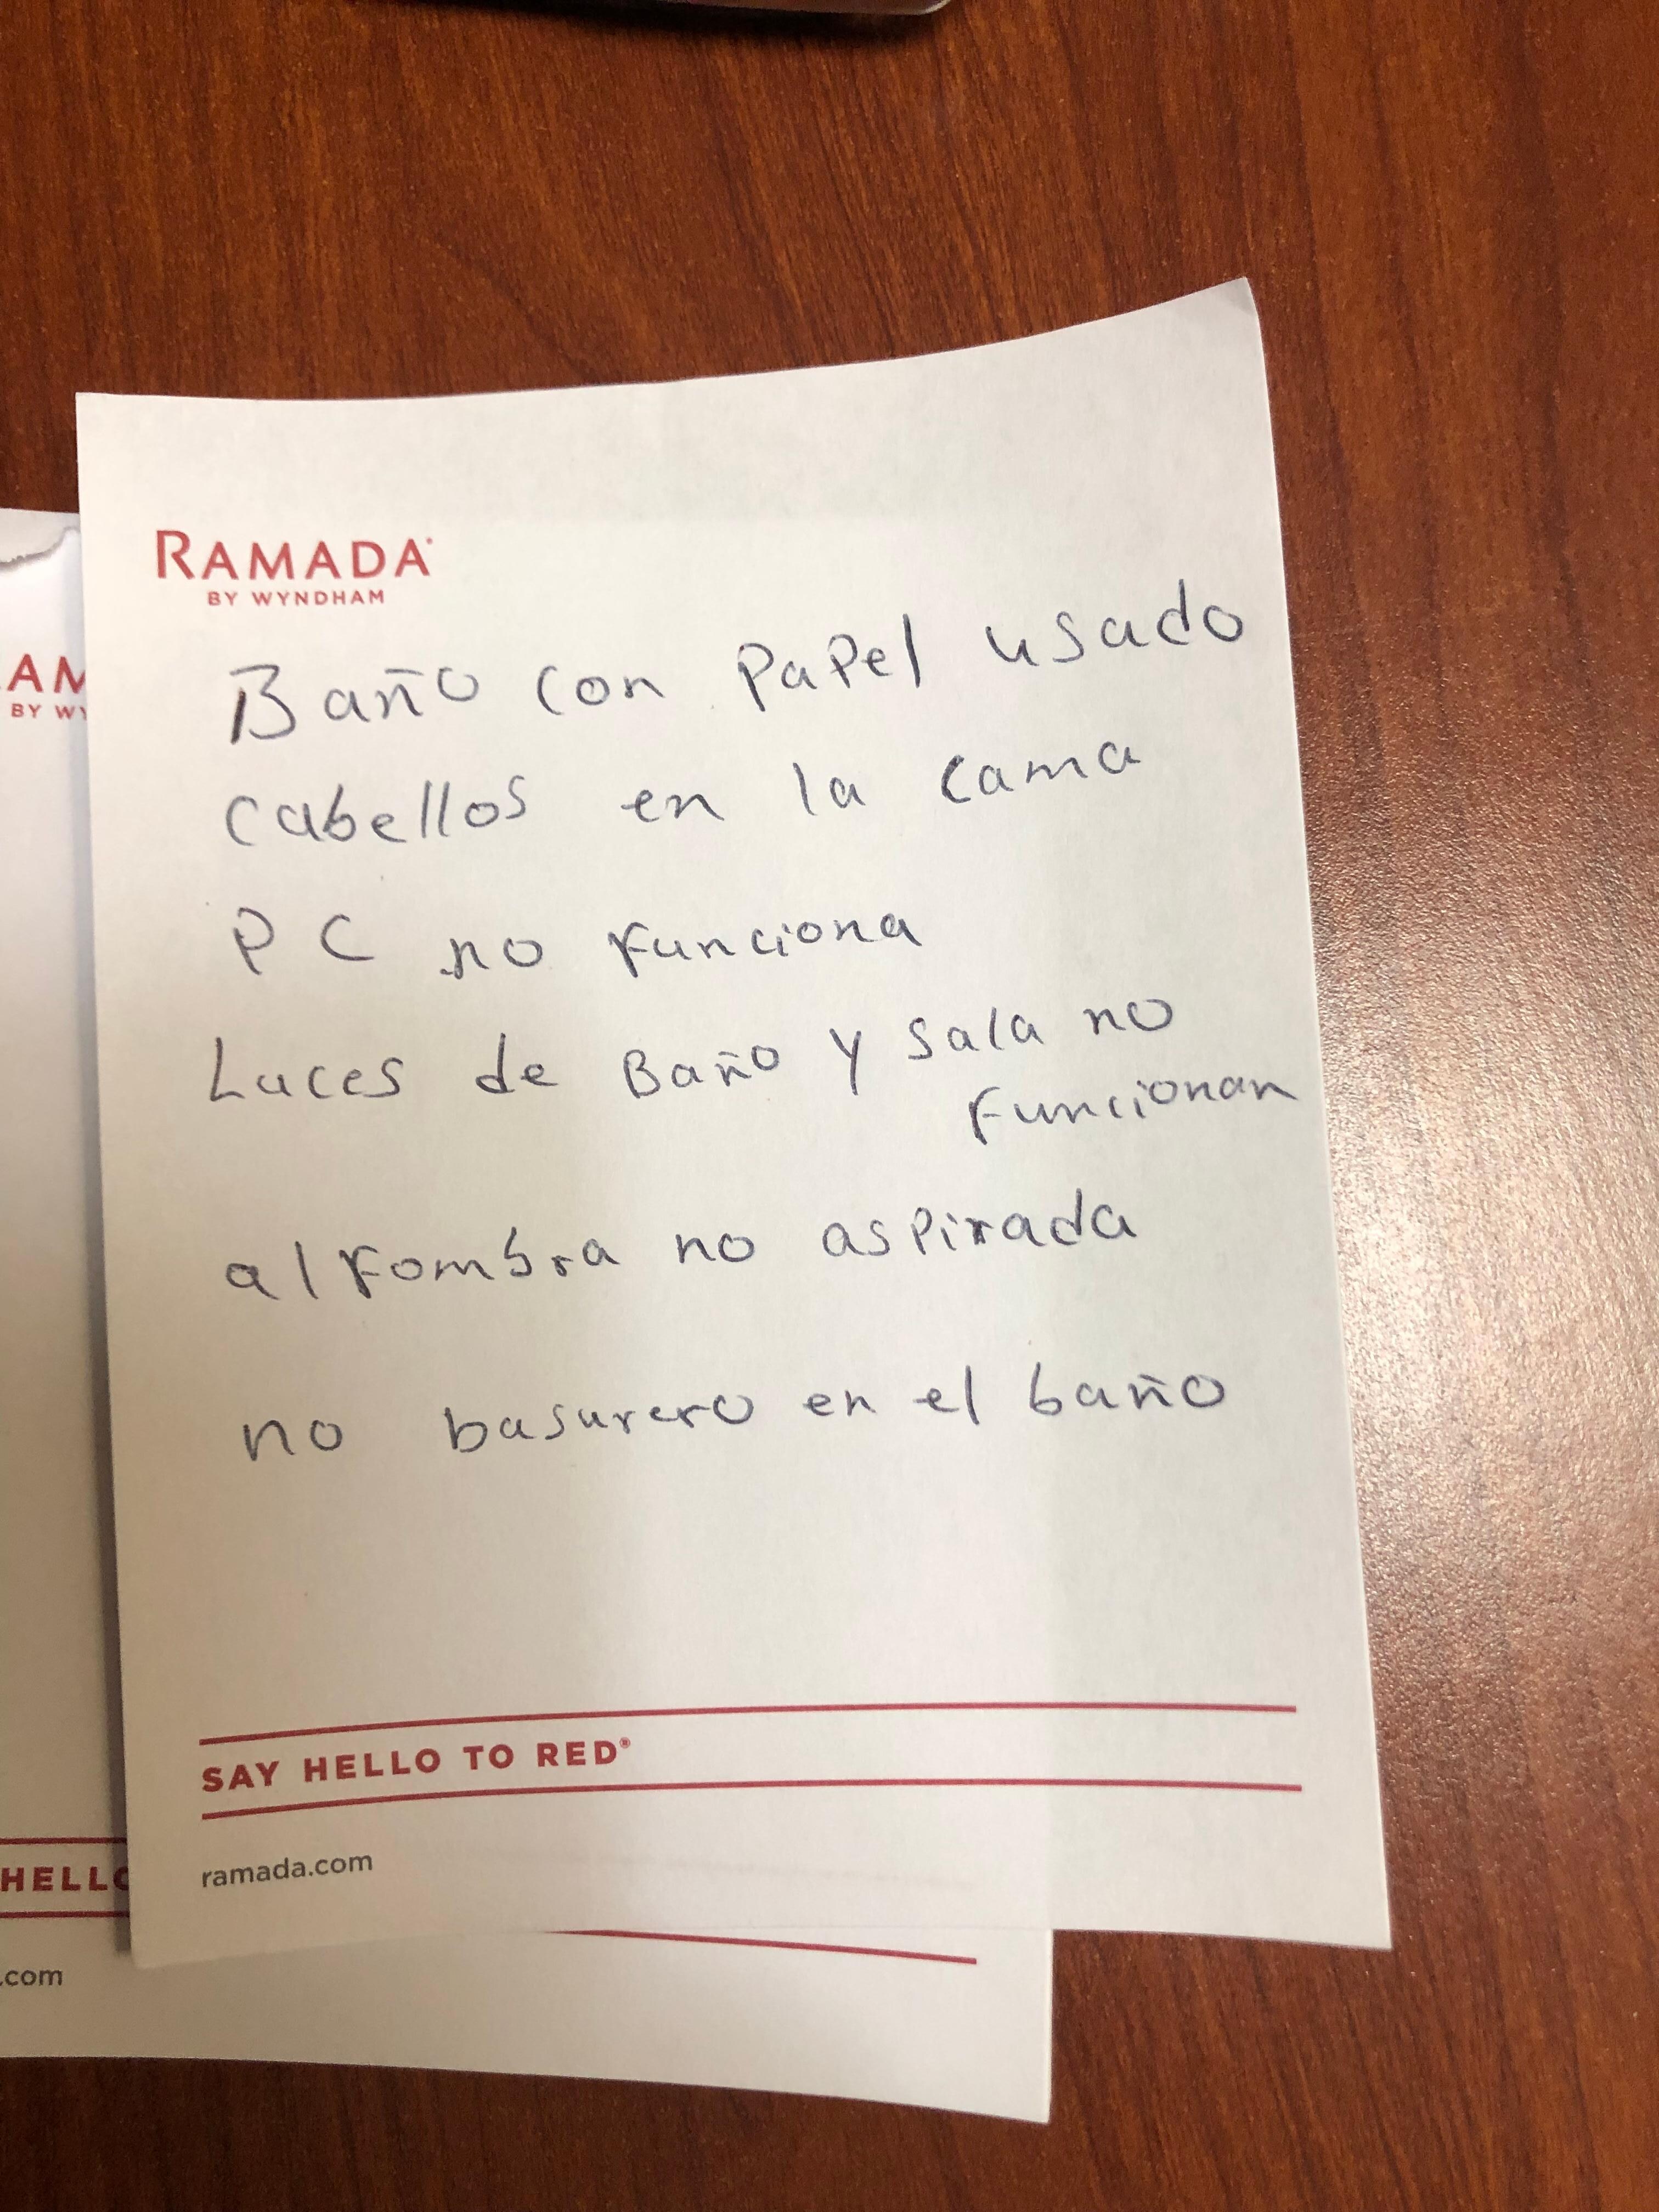 RAMADA
BY WYNDHAM
Baño con Papel usado
cabellos en la cama
PC no funciona
Luces de Baño y sala no
funcionan
alfombra no aspirada
no basurero en el baño
SAY HELLO TO RED®
ramada.com
AM
BY WY
HELLO
.com